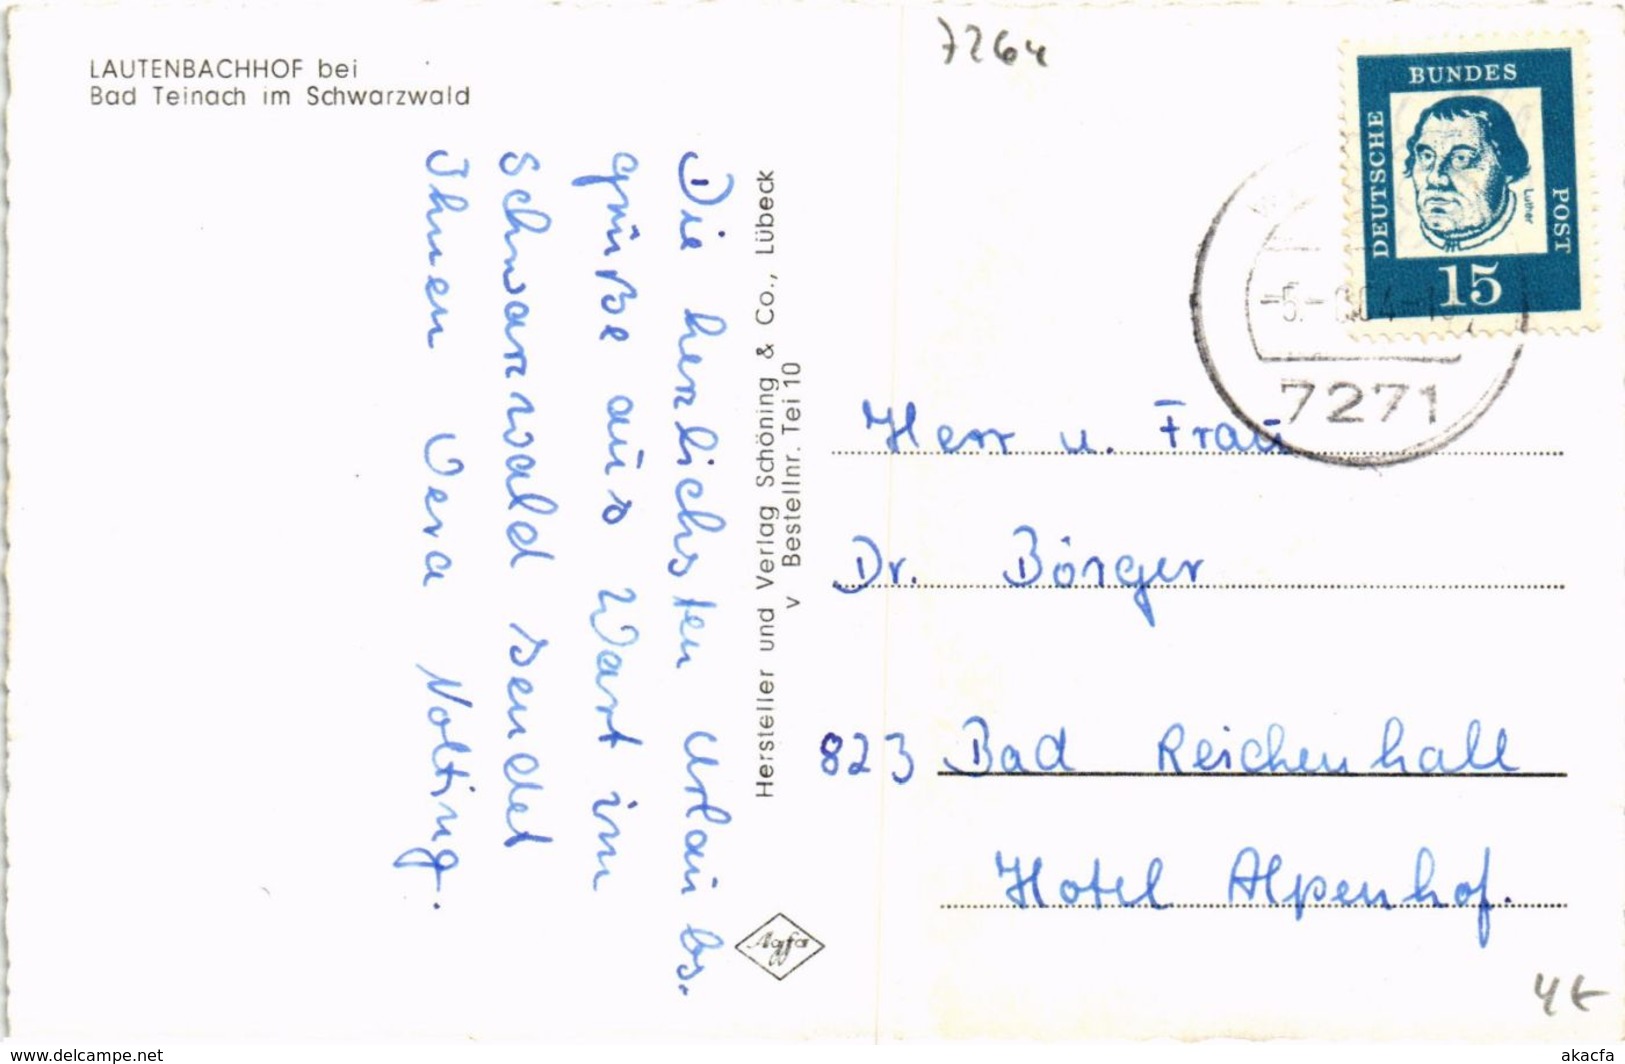 7264
LAUTENBACHHOF bei
Bad Teinach im Schwarzwald
DEUTSCHE
BUNDES
POST
Luther
15
7271
Die herzlichsten Urlaubs-
grüße aus Wart im
Schwarzwald sendet
Ihnen Vera Nolting.
Hersteller und Verlag Schöning & Co., Lübeck
v Bestellnr. Tei 10
Agfa
Herr u. Frau
Dr. Börger
823 Bad Reichenhall
Hotel Alpenhof.
4€
www.delcampe.net
akacfa